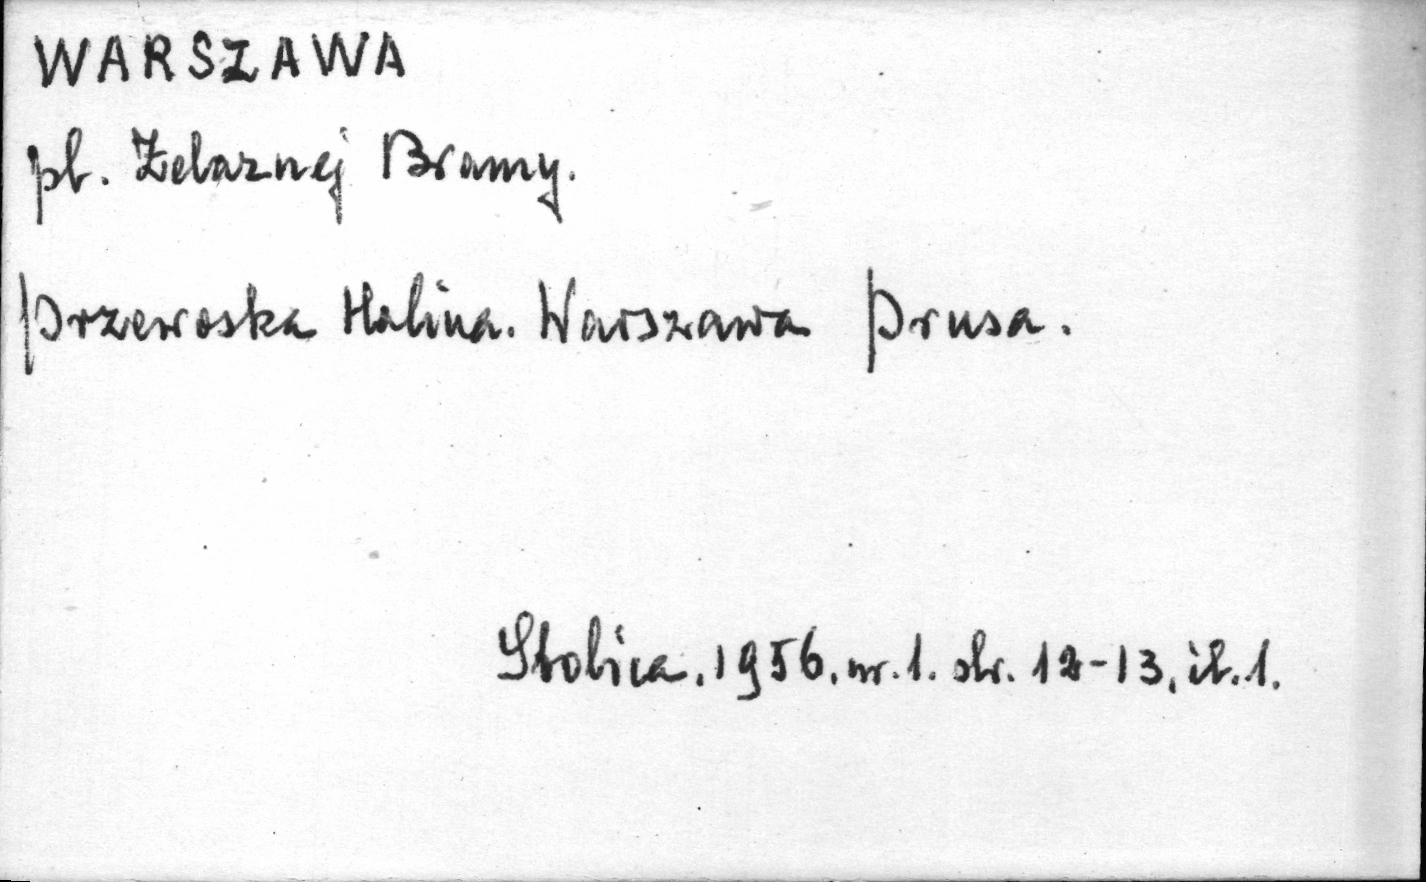 WARSZAWA
pl. Żelaznej Bramy.
Przewoska Halina. Warszawa Prusa.
Stolica. 1956. nr. 1. str. 12-13. il. 1.